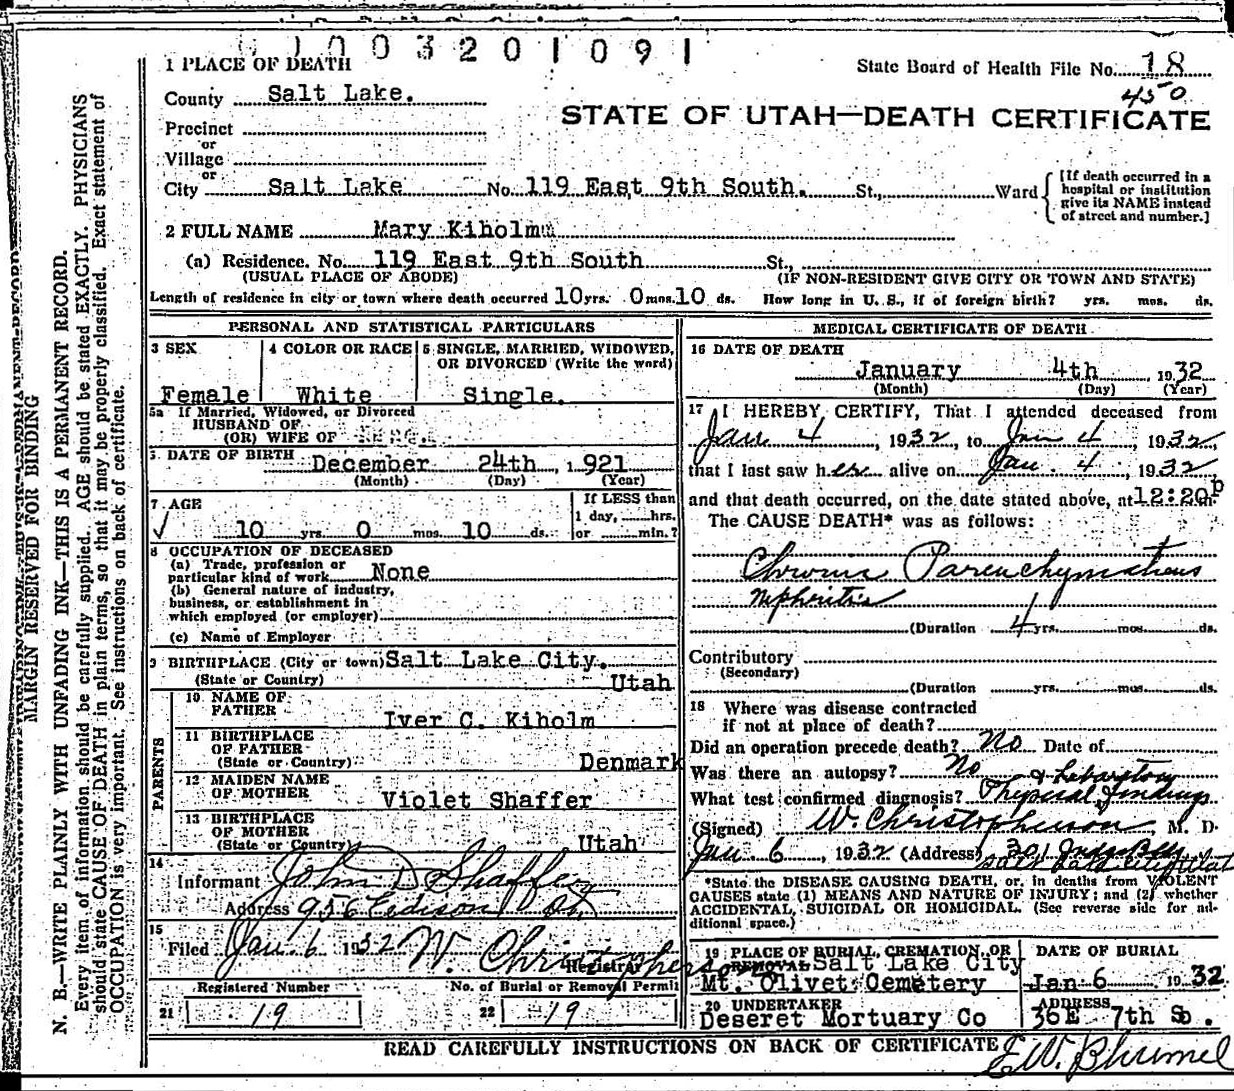 1003201091
1 PLACE OF DEATH
State Board of Health File No. 18
450
County Salt Lake.
STATE OF UTAH—DEATH CERTIFICATE
Precinct
or
Village
or
City Salt Lake No. 119 East 9th South. St., Ward
[If death occurred in a hospital or institution give its NAME instead of street and number.]
2 FULL NAME Mary Kiholm
(a) Residence. No. 119 East 9th South St.,
(USUAL PLACE OF ABODE) (IF NON-RESIDENT GIVE CITY OR TOWN AND STATE)
Length of residence in city or town where death occurred 10 yrs. 0 mos. 10 ds. How long in U. S., if of foreign birth? yrs. mos. ds.
MARGIN RESERVED FOR BINDING
N. B.—WRITE PLAINLY WITH UNFADING INK—THIS IS A PERMANENT RECORD.
Every item of information should be carefully supplied. AGE should be stated EXACTLY. PHYSICIANS
should state CAUSE OF DEATH in plain terms, so that it may be properly classified. Exact statement of
OCCUPATION is very important. See instructions on back of certificate.
PERSONAL AND STATISTICAL PARTICULARS
3 SEX
Female
4 COLOR OR RACE
White
5 SINGLE, MARRIED, WIDOWED,
OR DIVORCED (Write the word)
Single.
5a If Married, Widowed, or Divorced
HUSBAND OF
(OR) WIFE OF
DATE OF BIRTH December 24th, 1921
(Month) (Day) (Year)
7 AGE
10 yrs. 0 mos. 10 ds.
If LESS than
1 day, hrs.
or min.?
8 OCCUPATION OF DECEASED
(a) Trade, profession or
particular kind of work None
(b) General nature of industry,
business, or establishment in
which employed (or employer)
(c) Name of Employer
9 BIRTHPLACE (City or town) Salt Lake City.
(State or Country) Utah
PARENTS
10 NAME OF
FATHER Iver C. Kiholm
11 BIRTHPLACE
OF FATHER
(State or Country) Denmark
12 MAIDEN NAME
OF MOTHER Violet Shaffer
13 BIRTHPLACE
OF MOTHER
(State or Country) Utah
14
Informant John D Shaffer
Address 956 Edison St
15
Filed Jan. 6 1932 W. Christopherson
Registrar
Registered Number No. of Burial or Removal Permit
21 19 22 19
MEDICAL CERTIFICATE OF DEATH
16 DATE OF DEATH
January 4th, 1932
(Month) (Day) (Year)
17 I HEREBY CERTIFY, That I attended deceased from
Jan 4, 1932, to Jan 4, 1932
that I last saw her alive on Jan. 4, 1932
and that death occurred, on the date stated above, at 12:20 p m.
The CAUSE DEATH* was as follows:
Chronic Parenchymatous
Nephritis
(Duration 4 yrs. mos. ds.
Contributory
(Secondary)
(Duration yrs. mos. ds.
18 Where was disease contracted
if not at place of death?
Did an operation precede death? No Date of
Was there an autopsy? No
What test confirmed diagnosis? Physical & Laboratory findings
(Signed) W. Christopherson, M. D.
Jan. 6, 1932 (Address) 301
*State the DISEASE CAUSING DEATH, or, in deaths from VIOLENT
CAUSES state (1) MEANS AND NATURE OF INJURY; and (2) whether
ACCIDENTAL, SUICIDAL OR HOMICIDAL. (See reverse side for additional space.)
19 PLACE OF BURIAL, CREMATION, OR
REMOVAL Salt Lake City
Mt. Olivet Cemetery
DATE OF BURIAL
Jan 6 1932
20 UNDERTAKER
Deseret Mortuary Co
ADDRESS
36 E 7th So.
READ CAREFULLY INSTRUCTIONS ON BACK OF CERTIFICATE